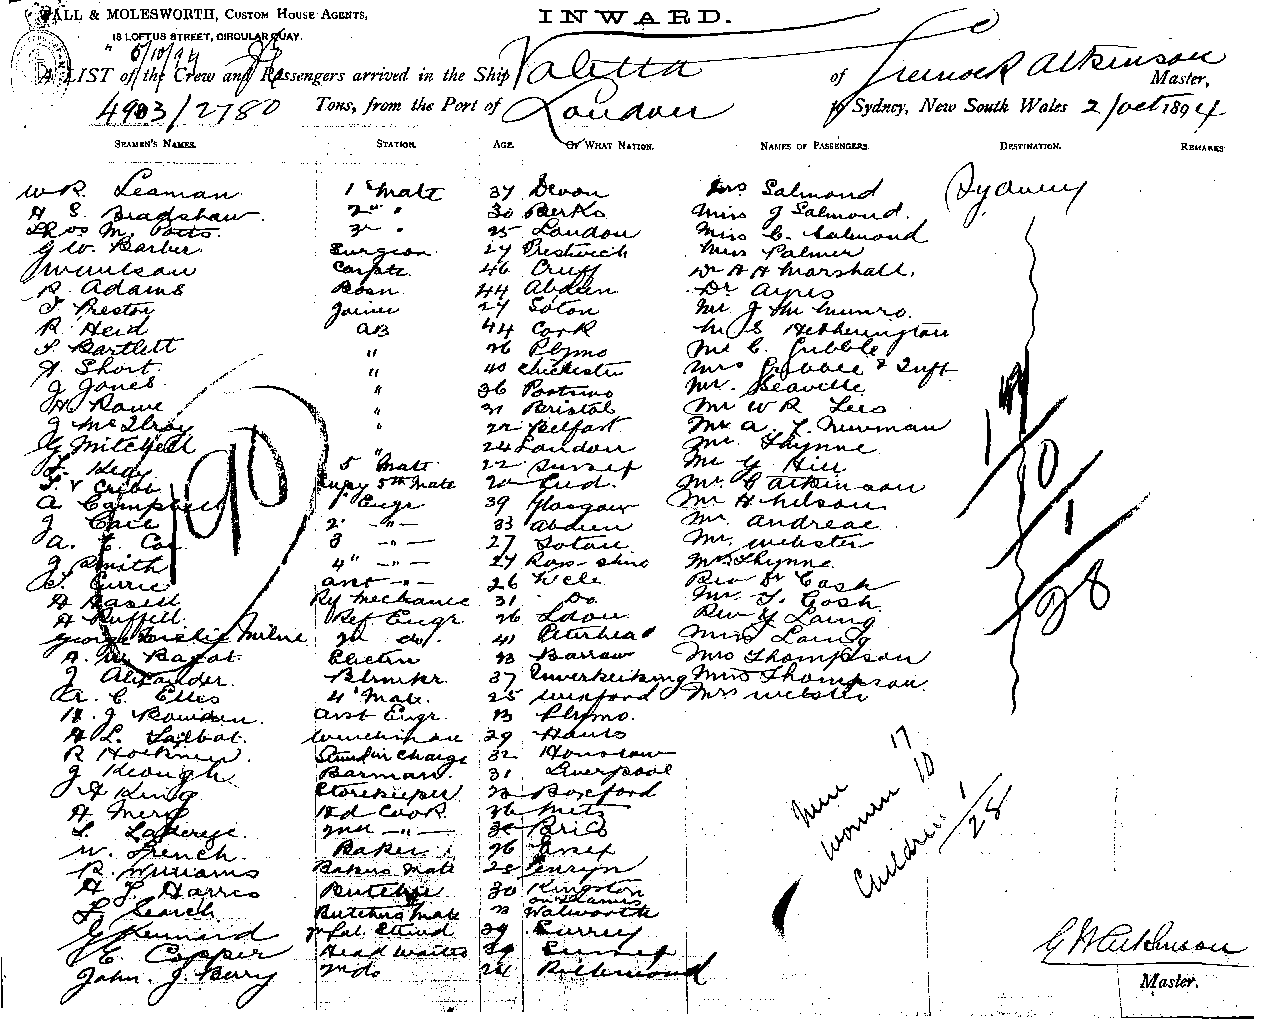 WALL & MOLESWORTH, CUSTOM HOUSE AGENTS,
INWARD.
18 LOFTUS STREET, CIRCULAR QUAY.
5/10/94
A LIST of the Crew and Passengers arrived in the Ship Valetta of Greenock Atkinson Master,
4903/2780 Tons, from the Port of London to Sydney, New South Wales 2/Oct 1894
SEAMEN'S NAMES. STATION. AGE. OF WHAT NATION. NAMES OF PASSENGERS. DESTINATION. REMARKS
W R Leaman 1st Mate 37 Devon Mrs Salmond Sydney
A S. Bradshaw 2nd " 30 Berks Miss J Salmond
Thos M. Potts 3rd " 25 London Miss C. Salmond
G W. Barber Surgeon 27 Prestwich Miss Palmer
J Wilson Carptr 46 Crieff Dr A H Marshall
R Adams Bosn 44 Abdeen Dr Ayres
T Preston Joiner 27 Soton Mr J M Munro
R. Heid AB 44 Cork M S Hetherington
S. Bartlett " 26 Plymo Mr C. Gribble
A Short " 40 Chichester Mrs Gribble & Inft
J Jones " 36 Portsmo Mr. Beaville
H Rowe " 31 Bristol Mr W R Lees
J McIlroy " 22 Belfast Mr A. L. Newman
G Mitchell " 24 London Mr. Thynne
5 Mate 22 Mr G Hill
Supy 5th Mate 20 Mr. G Atkinson
A. Campbell 1st Engr 39 Glasgow Mr H Nelson
J 2 -"- 33 Abdeen Mr. Andreae
A. C. Cox 3 -"- 27 Soton Mr. Webster
J Smith 4" -"- 27 Ross-shire Mrs Thynne
S. Currie asst -"- 26 Rev Dr Cosh
Ry Mechanic 31 Do Mr. T. Cosh
A Ruffell Ref Engr 26 Ldon Rev G Laing
George Leslie Milne 2nd do. 41 Peterhead Mrs Laing
A. W. Bagot Electrn 23 Barrow Mrs Thompson
J Alexander Blrmkr 37 Inverkeithing Miss Thompson
A. C. Ellis 4th Mate 25 Winsford Mrs Webster
H. J Bowden asst Engr. 23 Plymo.
A L. Talbot Winchman 29 Hants
R Hockney Stwd in Charge 32 Hounslow
J Keough Barman 31 Liverpool
A King Storekeeper 23 Boxford
A Merz Hd Cook 36 Metz
2nd -"-
W. French Baker 26 Essex
R. Williams Bakers Mate 25 Penryn
A T. Harris Butcher 30 Kingston on Thames
L Search Butchers Mate 23 Walworth
G Kennard 2nd Sal. Stwd 29 Surrey
E Copper Head Waiter
John J. Barry 2 do Richmond
190
17
10
1
28
Men 17
Women 10
Children 1
28
G W Atkinson
Master.